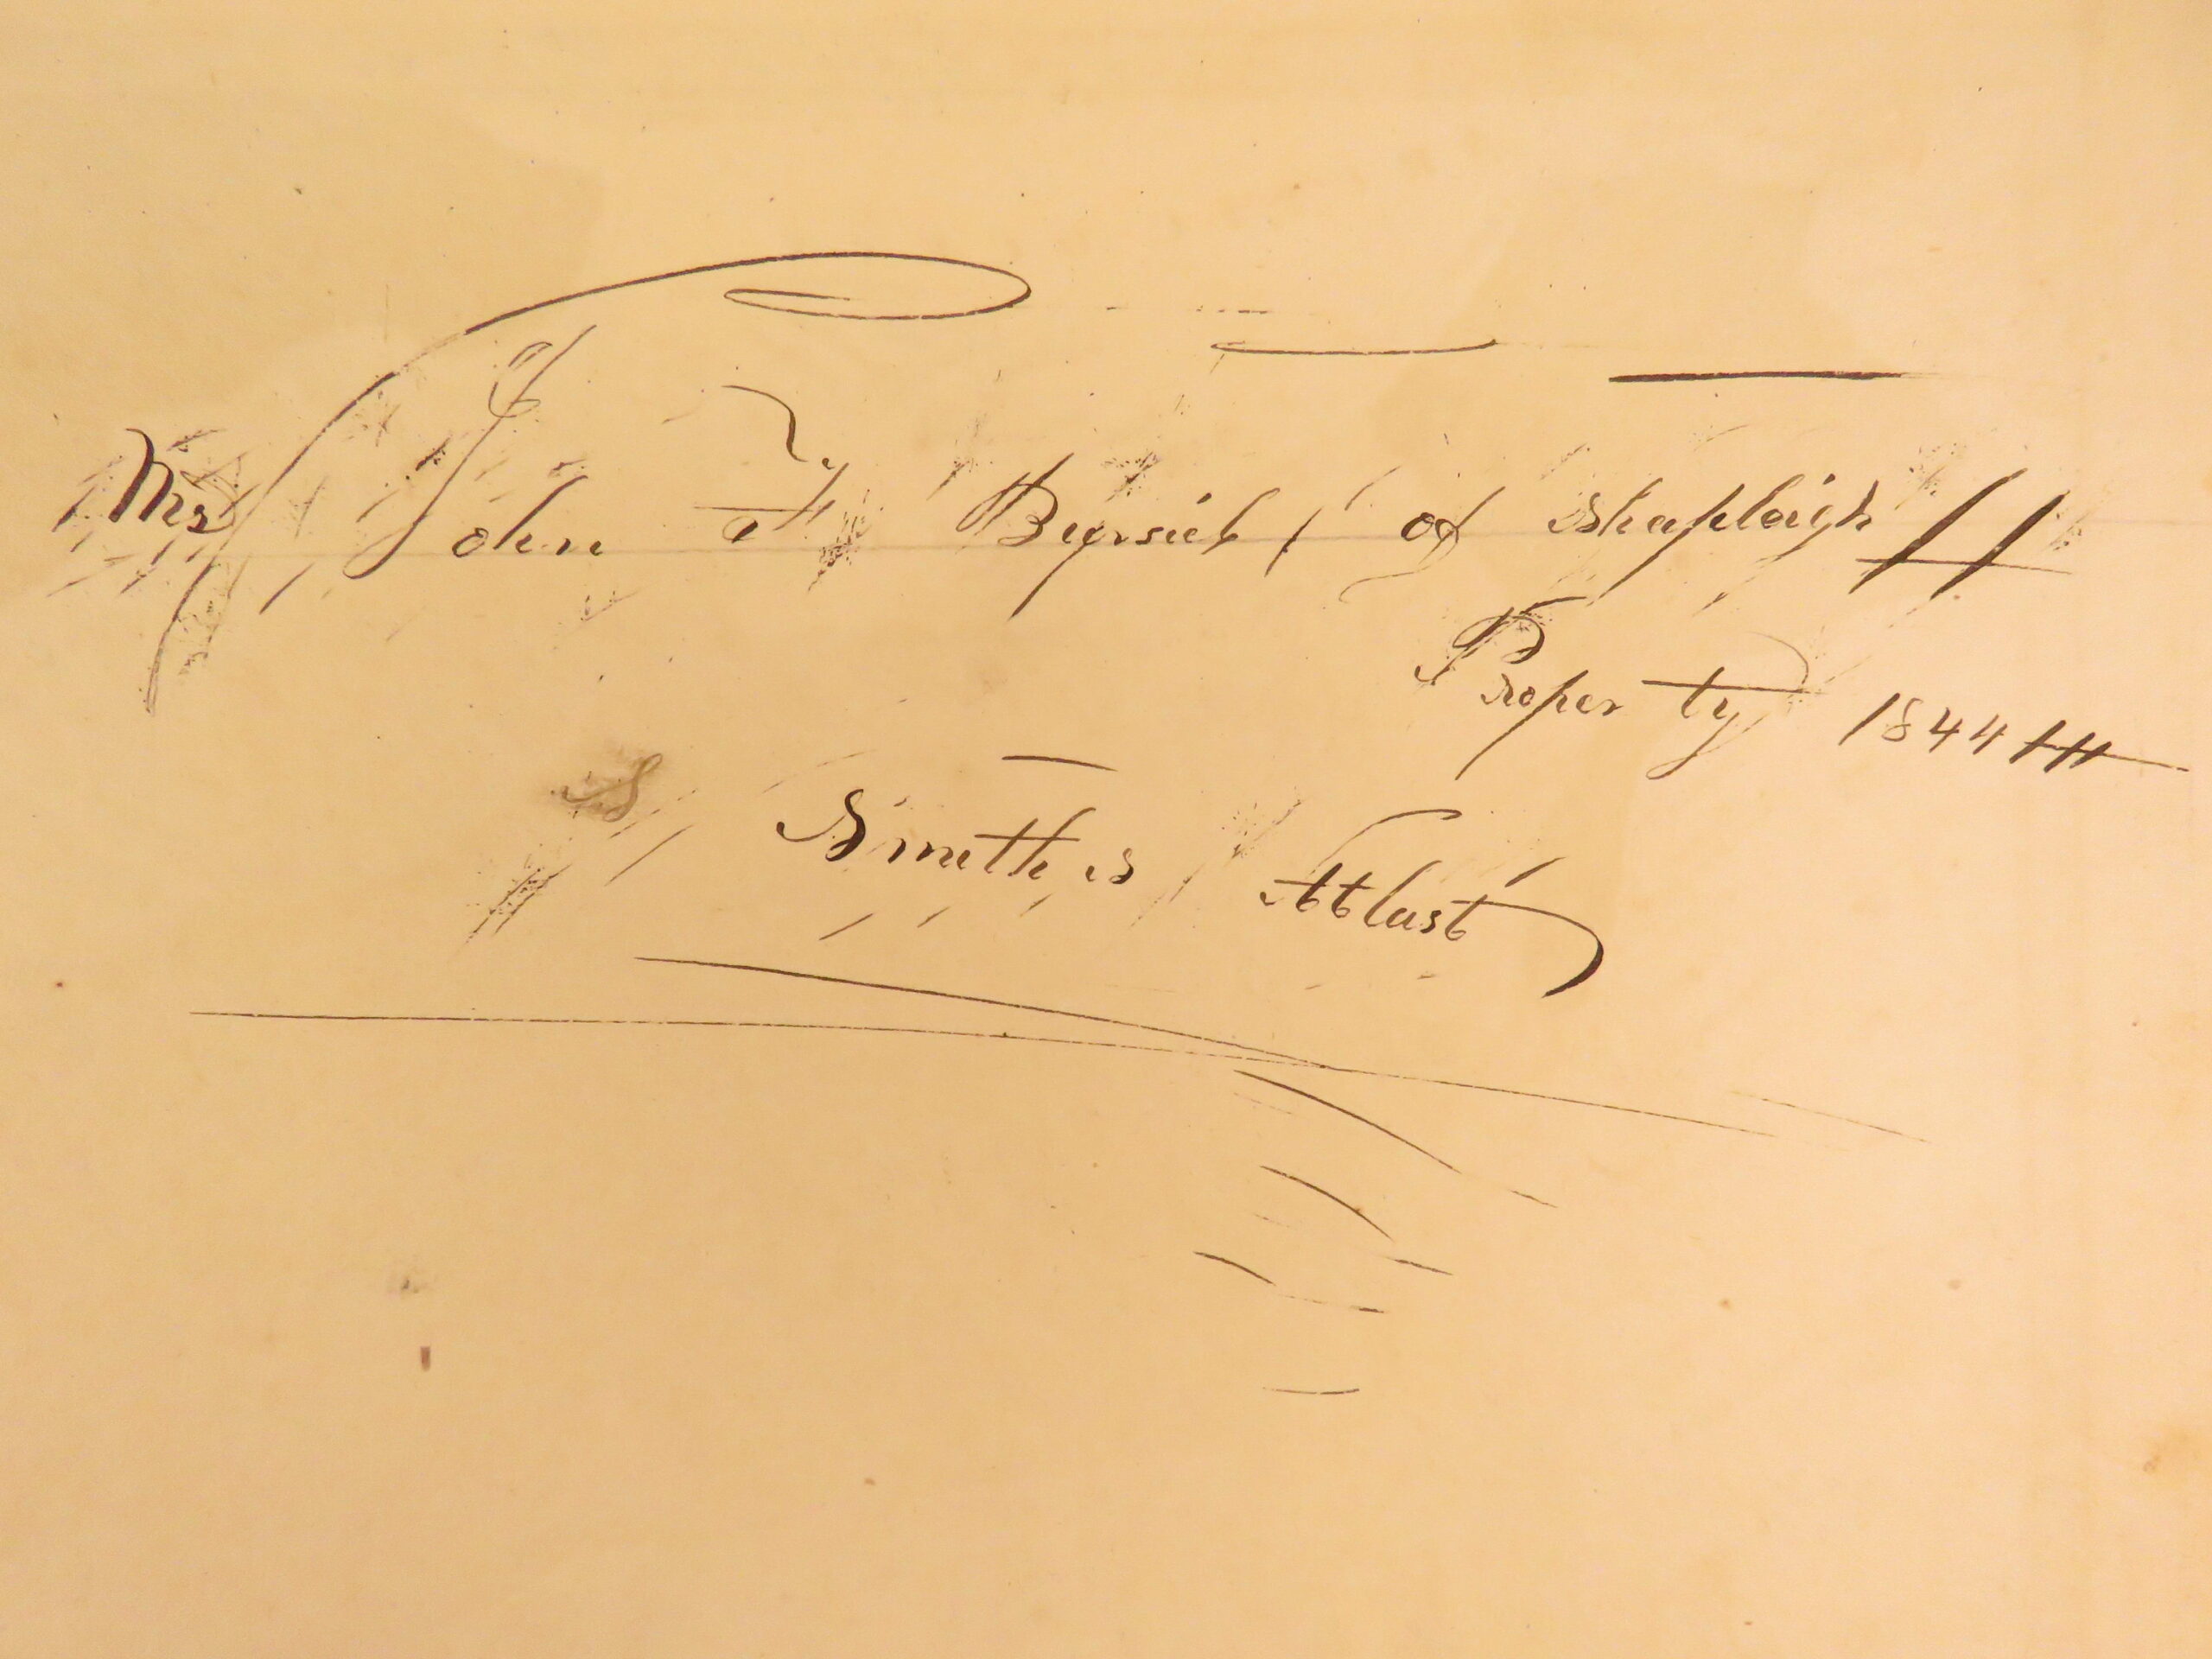 Mr John F of Shapleigh
Property 1844
S Smith's Atlast